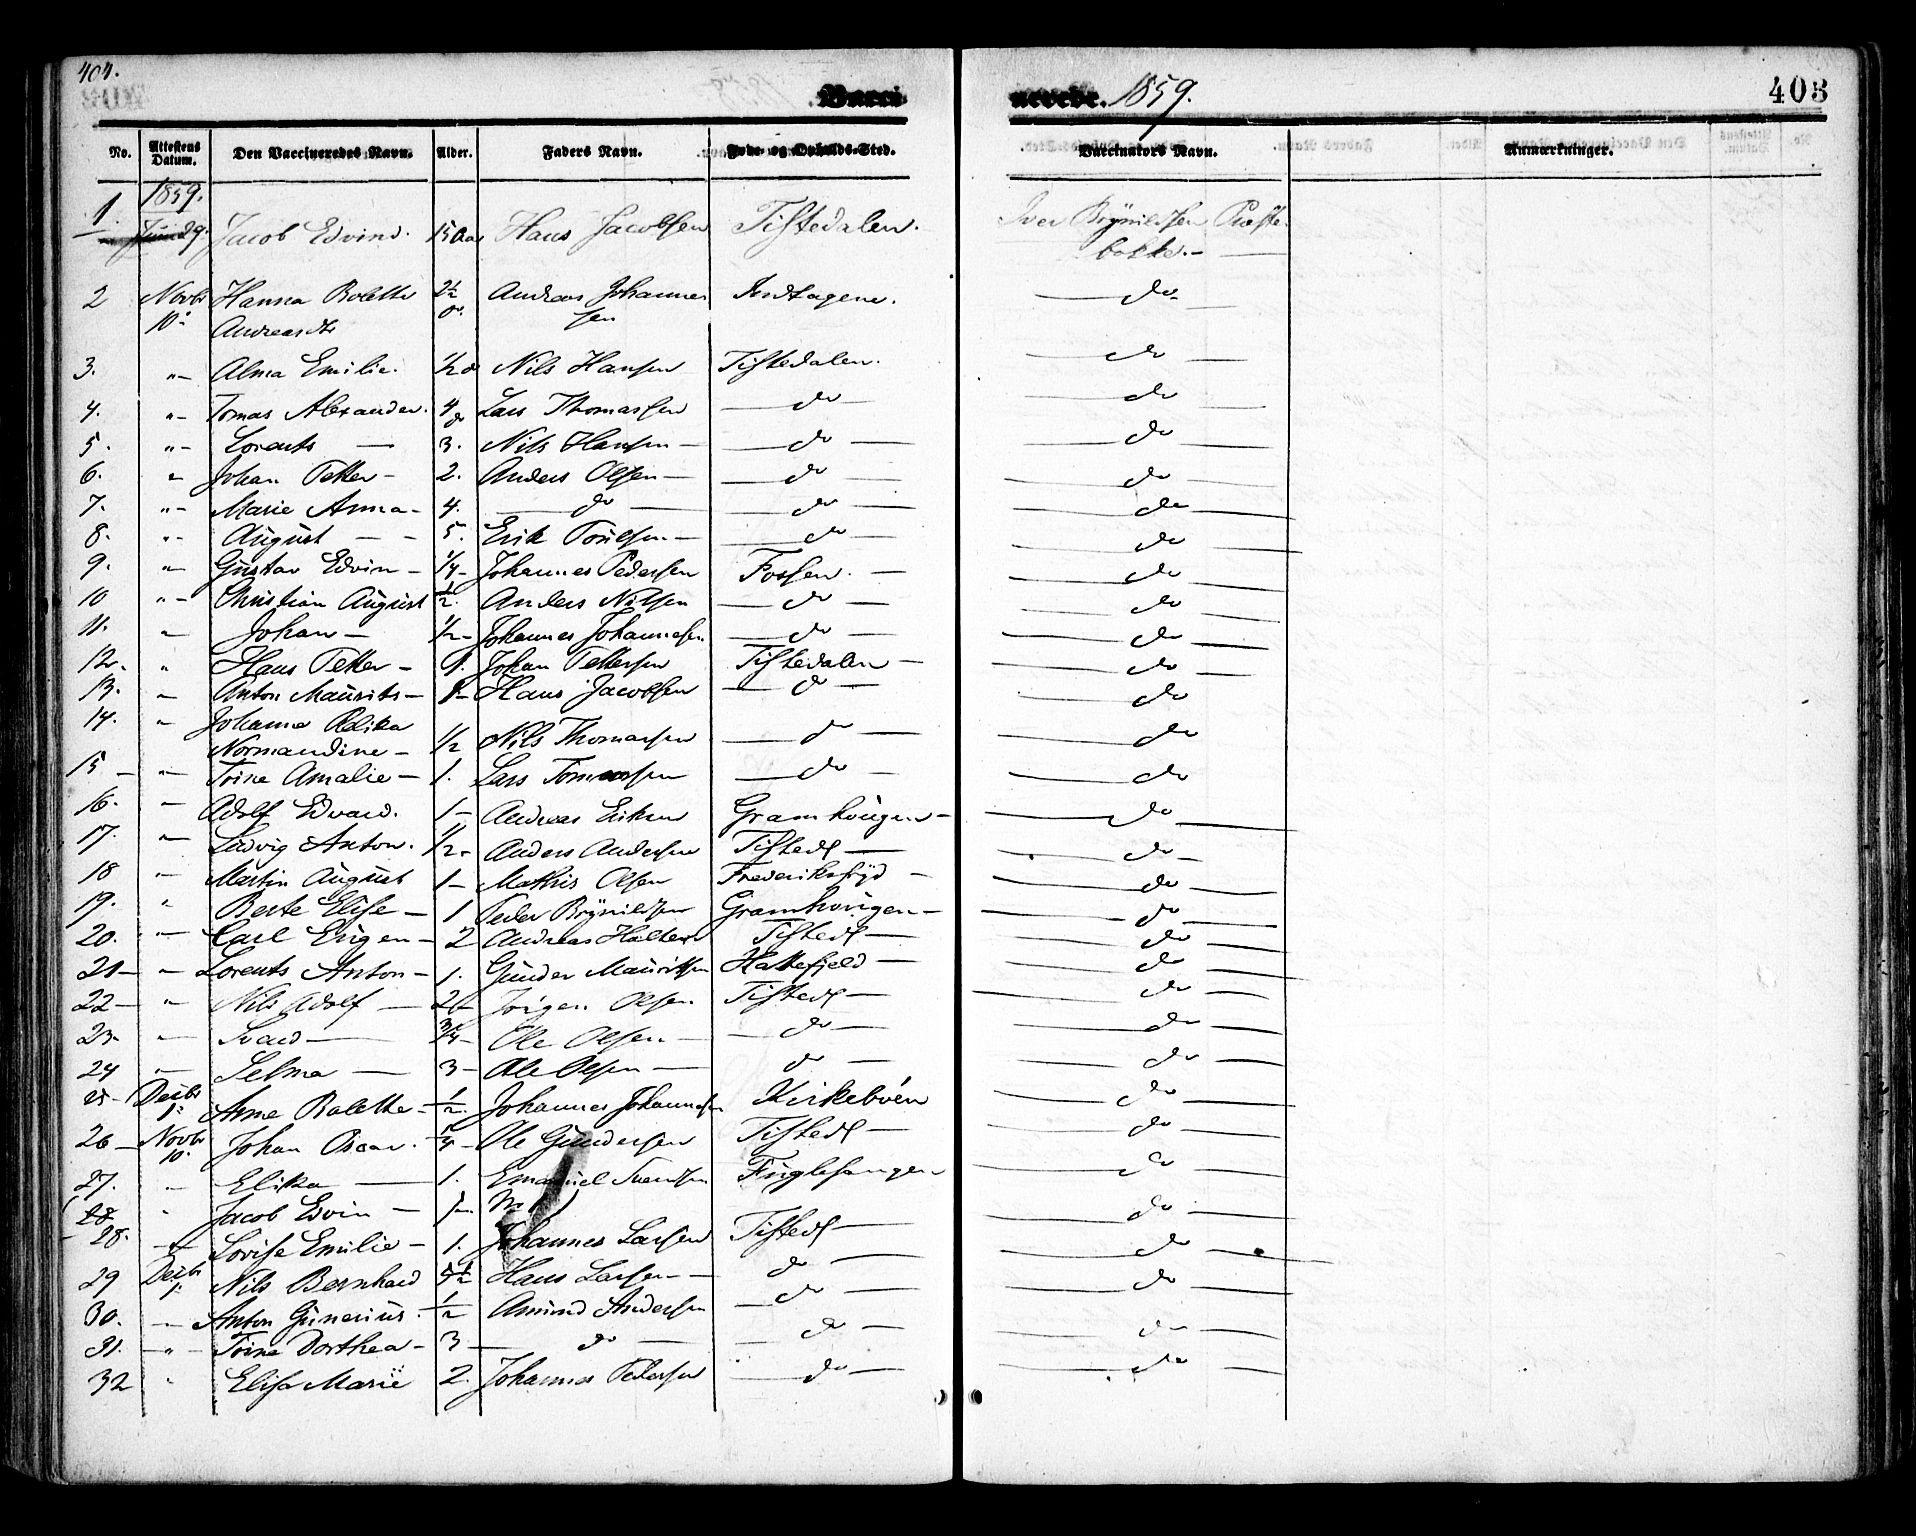 404.
Vacci
nerede. 1859.
403
No. Attestens Datum. Den Vaccineredes Navn. Alder. Faders Navn. Føde- og Opholds-Sted. Vaccinators Navn. Anmærkninger.
1859.
1. Juni 29. Jacob Edvind. 15 Aar Hans Jacobsen Tistedalen. Iver Brynildsen Præste-
bakke. —
2 Novbr Hanna Bolette 2½ Andreas Johannes Indtagene. do
10de Andreasdtr do sen
3. "- Alma Emilie. ½ do Nils Hansen Tistedalen. do
4. "- Tomas Alexander. 4 do Lars Thomassen — do — do
5. "- Lorents — 3. Nils Hansen — do — do
6. " Johan Petter - 2. Anders Olsen — do — do
7. "- Marie Anna - 4. — do — do — do
8. "- August — 5. Erik Poulsen — do — do
9. "- Gustav Edvin - ¼ - Johannes Pedersen Fossen. — do
10 "- Christian August ½. Anders Nilsen — do — do
11. " Johan - ½ - Johannes Johannesen — do — do
12. " Hans Petter - 9. Johan Pettersen Tistedalen — do
13. " Anton Maurits - 9 - Hans Jacobsen — do — do
14. " Johanne
Normandine - ½ Nils Thomassen — do — do
15 - "- Trine Amalie - 1. Lars Tomassen — do — do
16. "- Adolf Edvard. 1 - Andreas Eriksen Gramhougen - do
17. "- Ludvig Anton. ½ - Anders Andersen Tistedl — do
18 "- Martin August 1 - Mathis Olsen Frederiksfryd — do
19. " Berte Elise - 1 Peder Brynildsen Gramhougen - do
20. "- Carl Eugen - 2 Andreas Halten Tistedl — do
21 - "- Lorents Anton - 1. Gunder Mauritsen Hattefjeld — do
22 - " Nils Adolf — 2 Jörgen Olsen Tistedl — do
23. "- — ¾ - Ole Olsen — do — do
24 "- Selma — 3 - Ole Olsen — do — do
25 - Decbr 1ste Anne Bolette - ½. Johannes Johannesen Kirkeböen do
26 - Novbr 10. Johan Oscar. ¼ - Ole Gundersen Tistedl — do
27. " Elika — 1. Emanuel Svensen Fuglesangen do
(28 " Jacob Edvin — do
28. " Lovise Emilie - 1. Johannes Larsen Tistedl — do
29 Decbr 1. Nils Bernhard ½ Hans Larsen — do — do
30. "- Anton Gunerius. ½ Amund Andersen — do — do
31. - " - Trine Dorthea - 3 — do — do — do
32 " Elise Marie 2. Johannes Pedersen — do — do